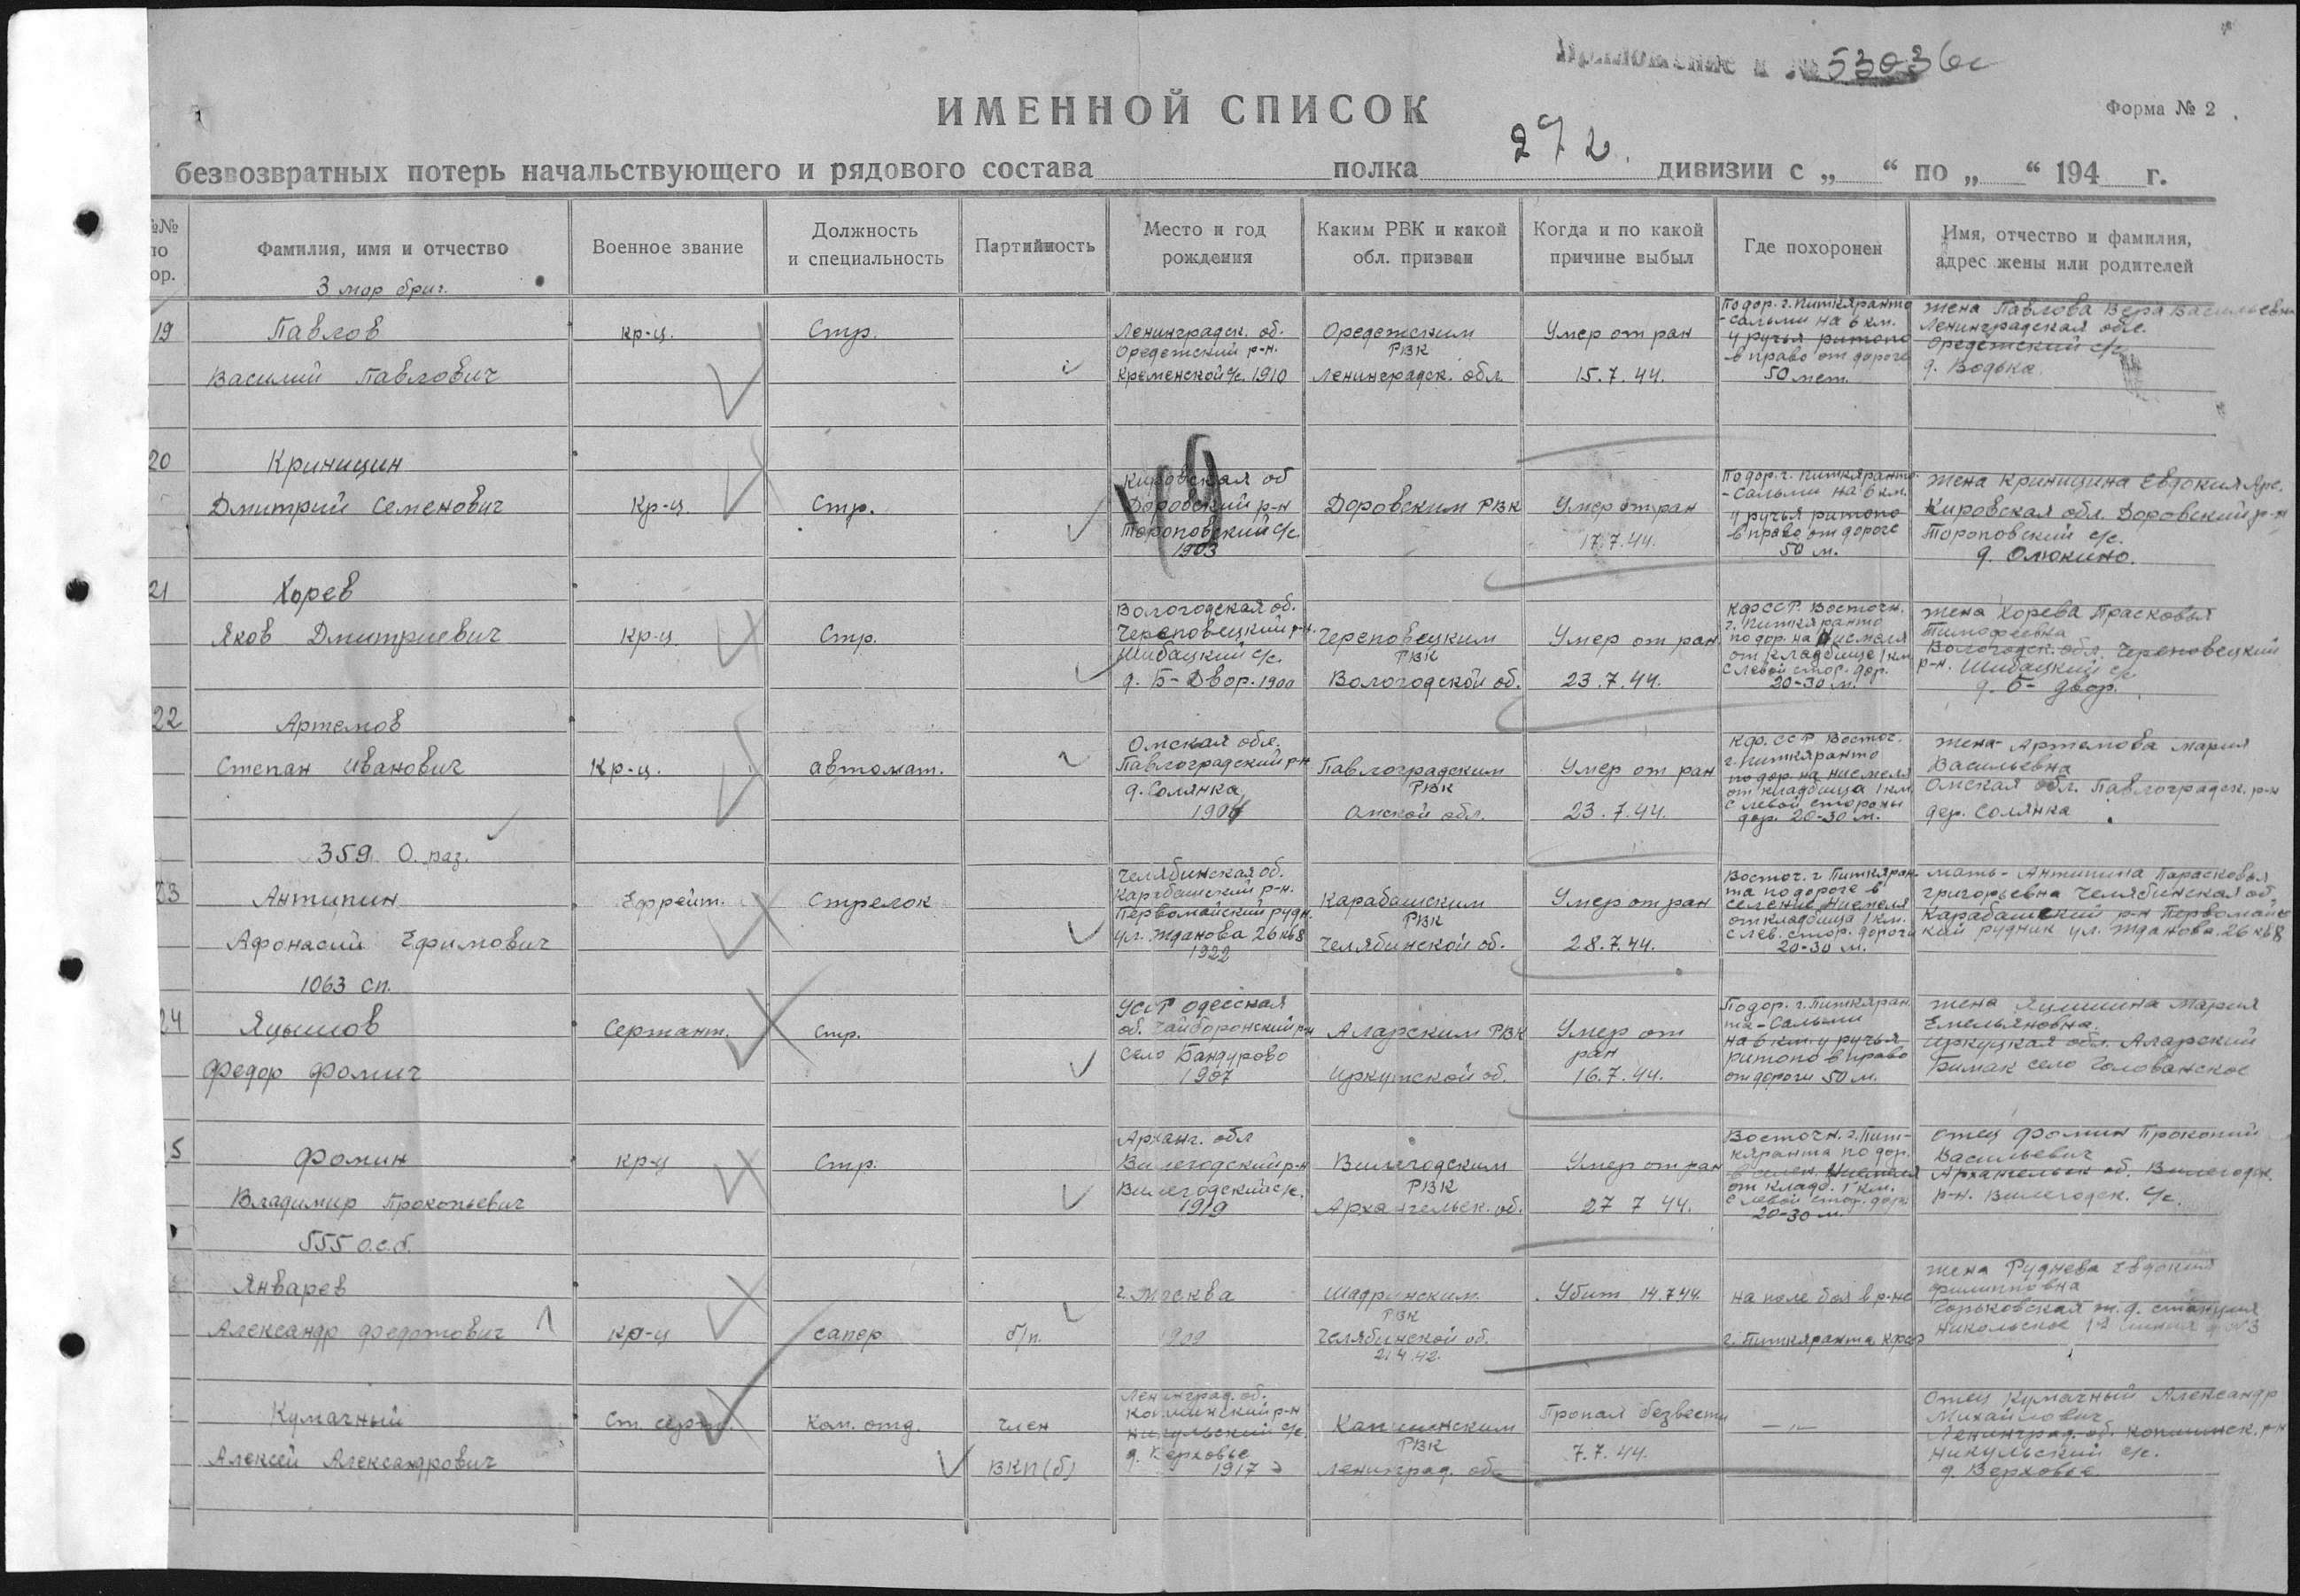 Приложение к № 53036с
ИМЕННОЙ СПИСОК
Форма № 2
безвозвратных потерь начальствующего и рядового состава полка 272. дивизии с „ “ по „ “ 194 г.
№№ по ор.
Фамилия, имя и отчество
Военное звание
Должность и специальность
Партийность
Место и год рождения
Каким РВК и какой обл. призван
Когда и по какой причине выбыл
Где похоронен
Имя, отчество и фамилия, адрес жены или родителей
3 мор бриг.
19
Павлов
Василий Павлович
кр-ц.
Стр.
Ленинградск. об.
Оредежский р-н.
Кременской с/с. 1910
Оредежским
РВК
Ленинградск. обл.
Умер от ран
15.7.44.
По дор. г. Питкяранто
-Сальми на 6 км.
у ручья ритопо
в право от дороге
50 мет.
жена Павлова Вера Васильевна
Ленинградская обл.
Оредежский с/с
д. Водька
20
Криницин
Дмитрий Семенович
Кр-ц.
Стр.
Кировская об
Доровский р-н
Тороповский с/с.
1903
Доровским РВК
Умер от ран
17.7.44.
По дор. г. Питкяранто
-Сальми на 6 км.
у ручья ритопо
в право от дороге
50 м.
жена Криницина Евдокия
Кировская обл. Доровский р-н
Тороповский с/с.
д. Олюкино.
21
Хорев
Яков Дмитриевич
Кр-ц
Стр.
Вологодская об.
Череповецкий р-н.
Шибацкий с/с.
д. Б-Двор. 1900
Череповецким
РВК
Вологодской об.
Умер от ран
23.7.44.
КФССР. Восточн.
г. Питкяранто
по дор. на Нисмеля
от кладбище 1 км
с левой стор. дор.
20-30 м.
жена Хорева Прасковья
Тимофеевна
Вологодск. обл. Череповецкий
р-н. Шибацкий с/с
д. Б- двор.
22
Артемов
Степан Иванович
Кр-ц.
автомат.
Омская обл.
Павлоградский р-н
д. Солянка
1904
Павлоградским
РВК
Омской обл.
Умер от ран
23.7.44.
КФ.ССР Восточ.
г. Питкяранто
по дор. на Нисмеля
от кладбища 1 км
с левой стороны
дор. 20-30 м.
жена- Артемова Мария
Васильевна
Омская обл. Павлоградск. р-н
дер. Солянка
359 О. раз.
23
Антипин
Афонасий Ефимович
Ефрейт.
Стрелок
Челябинская об.
Карабашский р-н.
Первомайский рудн.
ул. Жданова 26 кв 8
1922
Карабашским
РВК
Челябинской об.
Умер от ран
28.7.44.
Восточ. г. Питкяран-
та по дороге в
селение Нисмеля
от кладбища 1 км.
с лев. стор. дороги
20-30 м.
мать- Антипина Парасковья
григорьевна Челябинская об.
Карабашский р-н Первомайс
кий рудник ул. Жданова. 26 кв 8
1063 сп.
24
Яцышов
Федор Фомич
Сержант.
Стр.
УССР Одесская
об. Гайворонский р-н
Село Бандурово
1907
Аларским РВК
Иркутской об.
Умер от
ран
16.7.44.
По дор. г. Питкяран
та-Сальми
на 6 км у ручья
ритопо в право
от дороги 50 м.
жена Мария
Емельяновна.
Иркуцкая обл. Аларский
село Голованское
5
Фомин
Владимир Прокопьевич
кр-ц
Стр.
Арханг. обл
Вилегодский р-н
Вилегодский с/с.
1919
Вилегодским
РВК
Архангельск. об.
Умер от ран
27 7 44.
Восточн. г. Пит-
кяранта по дор.
в селен. Нисмеля
от кладб. 1 км.
с левой стор. дор.
20-30 м.
отец Фомин Прокопий
Васильевич
Архангельск об. Вилегодск.
р-н. Вилегодск. с/с.
555 о.с.б.
Январев
Александр Федотович
кр-ц
сапер
б/п.
г. Москва
1909
Шадринским
РВК
Челябинской об.
21.4.42.
Убит 14.7.44.
на поле боя в р-не
г. Питкяранта КФССР
жена Руднева Евдокия
Филипповна
Горьковская ж.д. станция
Никольское 1я линия д №3
Кумачный
Алексей Александрович
Ст. серж.
Ком. отд.
член
ВКП(б)
Ленинград. об.
Капшинский р-н
Никульский с/с.
д. Верховье
1917
Капшинским
РВК
Ленинград. об.
Пропал безвести
7.7.44.
— „ —
отец Кумачный Александр
Михайлович
Ленинград. об. Капшинск. р-н
Никульский с/с.
д. Верховье